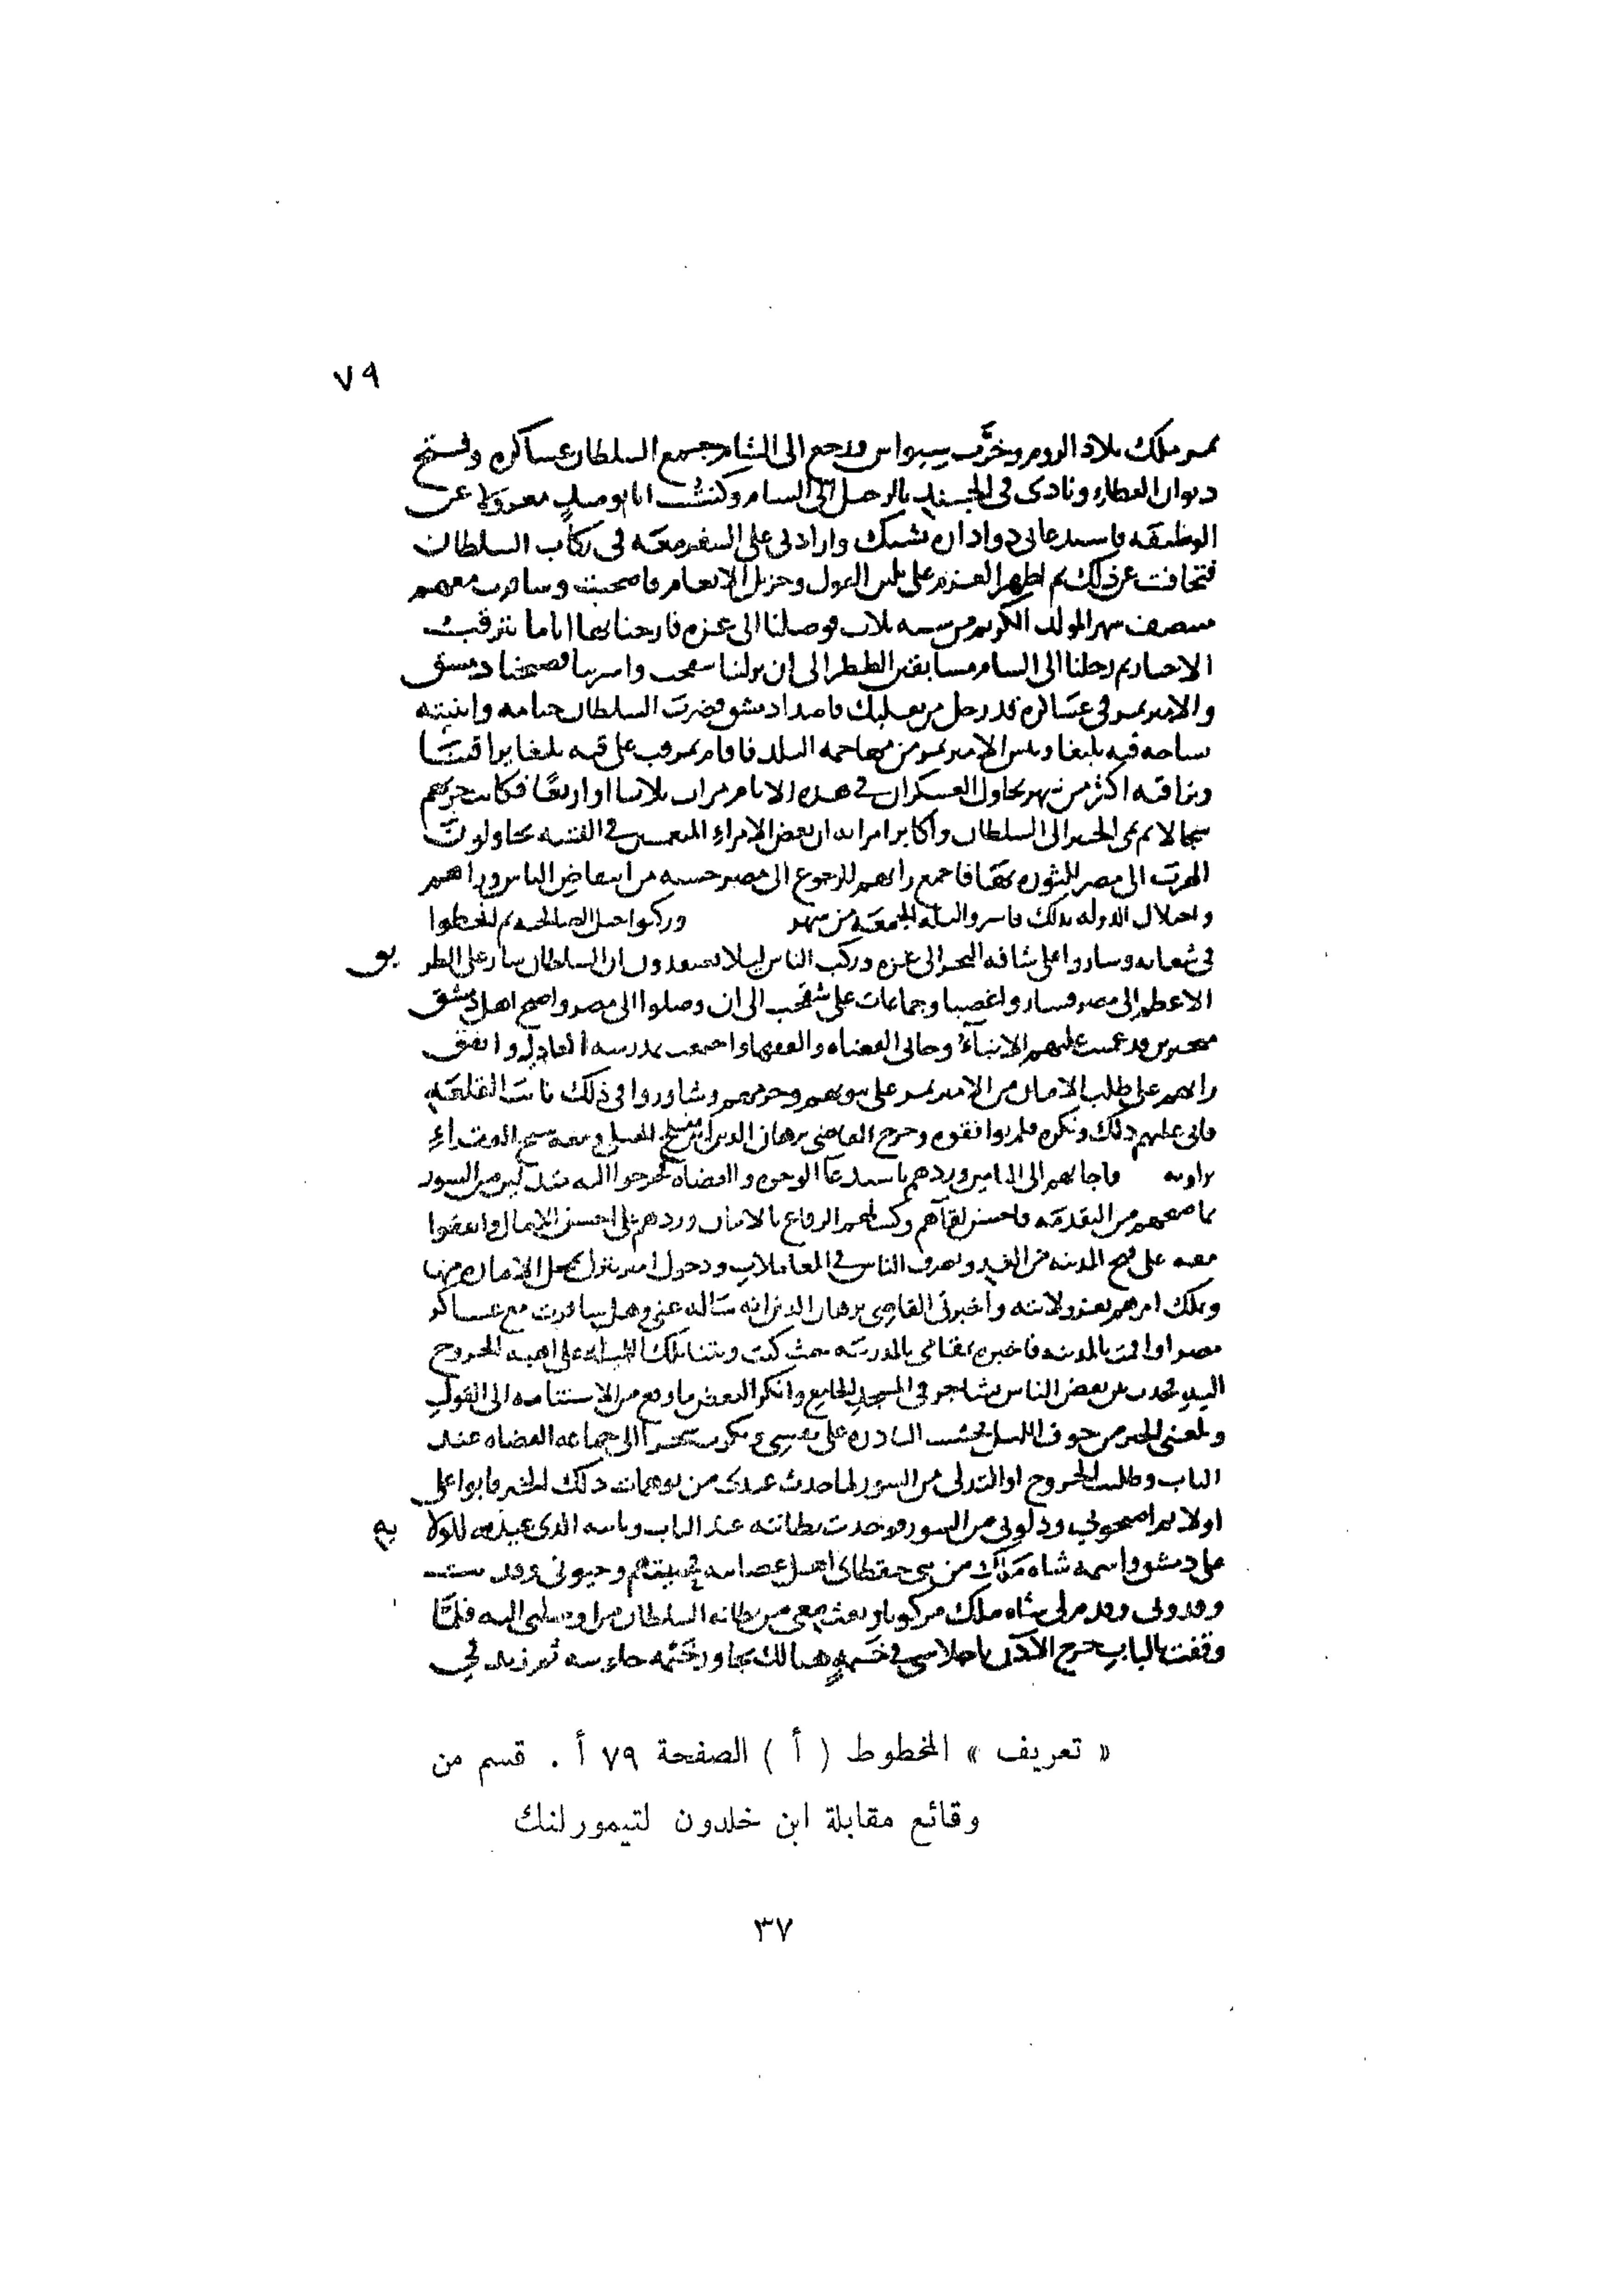 ٧٩
تمر ملك بلاد الروم وخرّب سيواس ورجع الى الشام فجمع السلطان عساكره وفتح
ديوان العطاء ونادى فى الجند بالرحيل الى الشام وكنت انا يوميذٍ معزولا عن
الوظيفه فاستدعانى دواداره يشبك وارادنى على السفر معه فى ركاب السلطان
فتجافيت عن ذلك ثم اظهر العزم على بلين القول وجزيل الانعام فاصحبت وسافرت معهم
منتصف شهر المولد الكريم من سنه ثلاث فوصلنا الى غزه فارحنا بها اياما نترقب
الاخبار ثم رحلنا الى الشام مسابقين الططر الى ان نزلنا شقحب واسرينا فصبحنا دمشق
والامير تمر فى عساكره قد رحل من بعلبك قاصدا دمشق فضرب السلطان خيامه وابنيته
بساحه قبه يلبغا ويئس الامير تمر من مهاجمه البلد فاقام بمرقب على قبه يلبغا يراقبنا
ونراقبه اكثر من شهر تجاول العسكران فى هذه الايام مرات ثلاثا او اربعًا فكانت حربهم
سجالا ثم نمى الخبر الى السلطان وأكابر امرائه ان بعض الامراء المنغمسين فى الفتنه يحاولون
الهرب الى مصر للثوره بها فاجمع رايهم للرجوع الى مصر خشيه من انتقاض الناس وراهم
واختلال الدوله بذلك فاسروا ليله الجمعه من شهر وركبوا جبل الصالحيه ثم انحطوا
فى شعابه وساروا على شافه البحر الى غزه وركب الناس ليلا يعتقدون ان السلطان سار على الطريق
الاعظم الى مصر فساروا عصبا وجماعات على شقحب الى ان وصلوا الى مصر واصبح اهل دمشق
متحيرين قد عميت عليهم الانباء وجانى القضاه والفقها واجتمعت بمدرسه العادليه واتفق
رايهم على طلب الامان من الامير تمر على بيوتهم وحرمهم وشاوروا فى ذلك نائب القلعه
فابى عليهم ذلك ونكره فلم يوافقوه وخرج القاضى برهان الدين بن مفلح الحنبلى ومعه شيخ الفقراء
بزاويه فاجابهم الى التامين وردهم باستدعا الوجوه والقضاه فخرجوا اليه متدلين من السور
بما صحبهم من التقدمه فاحسن لقاهم وكتب لهم الرقاع بالامان وردهم على احسن الامال واتفقوا
معه على فتح المدينه من الغد وتصرف الناس فى المعاملات ودخول امير ينزل بمحل الاماره منها
ويملك امرهم بعز ولايته وأخبرنى القاضى برهان الدين انه سأله عنى وهل سافرت مع عساكر
مصر او اقمت بالمدينه فاخبره بمقامى بالمدرسه حيث كنت وبتنا تلك الليله على اهبه الخروج
اليه فحدث بين بعض الناس تشاجر فى المسجد الجامع وانكر البعض ما وقع من الاستنامه الى القول
وبلغنى الخبر من جوف الليل فخشيت البادره على نفسى وبكرت سحرا الى جماعه القضاه عند
الباب وطلبت الخروج او التدلى من السور لما حدث عندى من توهمات ذلك الخبر فابوا على
اولا ثم اصخوا لى ودلونى من السور فوجدت بطانته عند الباب ونائبه الذى عينه للولايه
على دمشق واسمه شاه ملك من بنى جقطاى اهل عصابته فحييتهم وحيونى وفديت
وفدونى وقدم لى شاه ملك مركوبا وبعث معى من بطانه السلطان من اوصلنى اليه فلمّا
وقفت بالباب خرج الاذن باجلاسى فى خيمه هنالك تجاور خيمه جلوسه ثم زيد فى
« تعريف » المخطوط ( أ ) الصفحة ٧٩ أ . قسم من
وقائع مقابلة ابن خلدون لتيمورلنك
٣٧